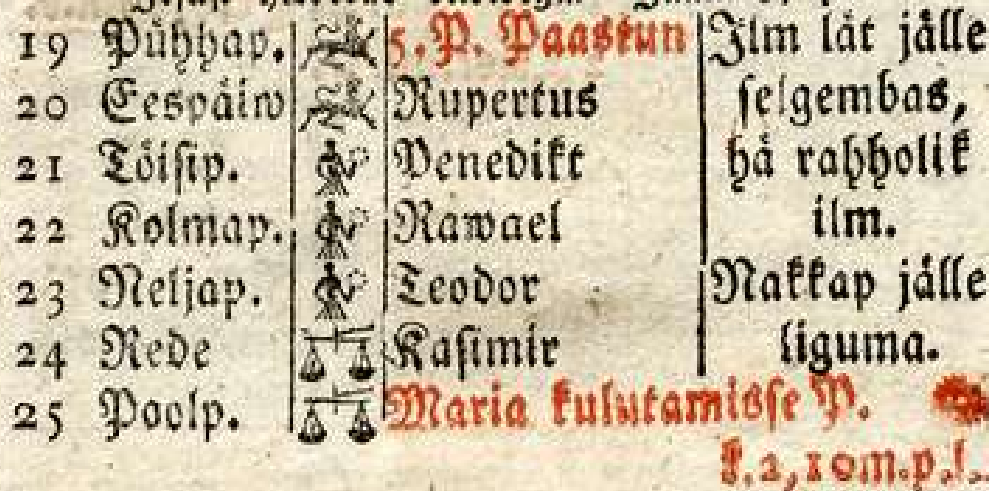 19 Pühhap. 5. P. Paastun Ilm lät jälle
20 Eespäiw Rupertus selgembas,
21 Töisip. Penedikt hä rahholik
22 Kolmap. Rawael ilm.
23 Neljap. Teodor Nakkap jälle
24 Rede Kasimir liguma.
25 Poolp. Maria kulutamisse P.
k. 2, 10 m. p. l.